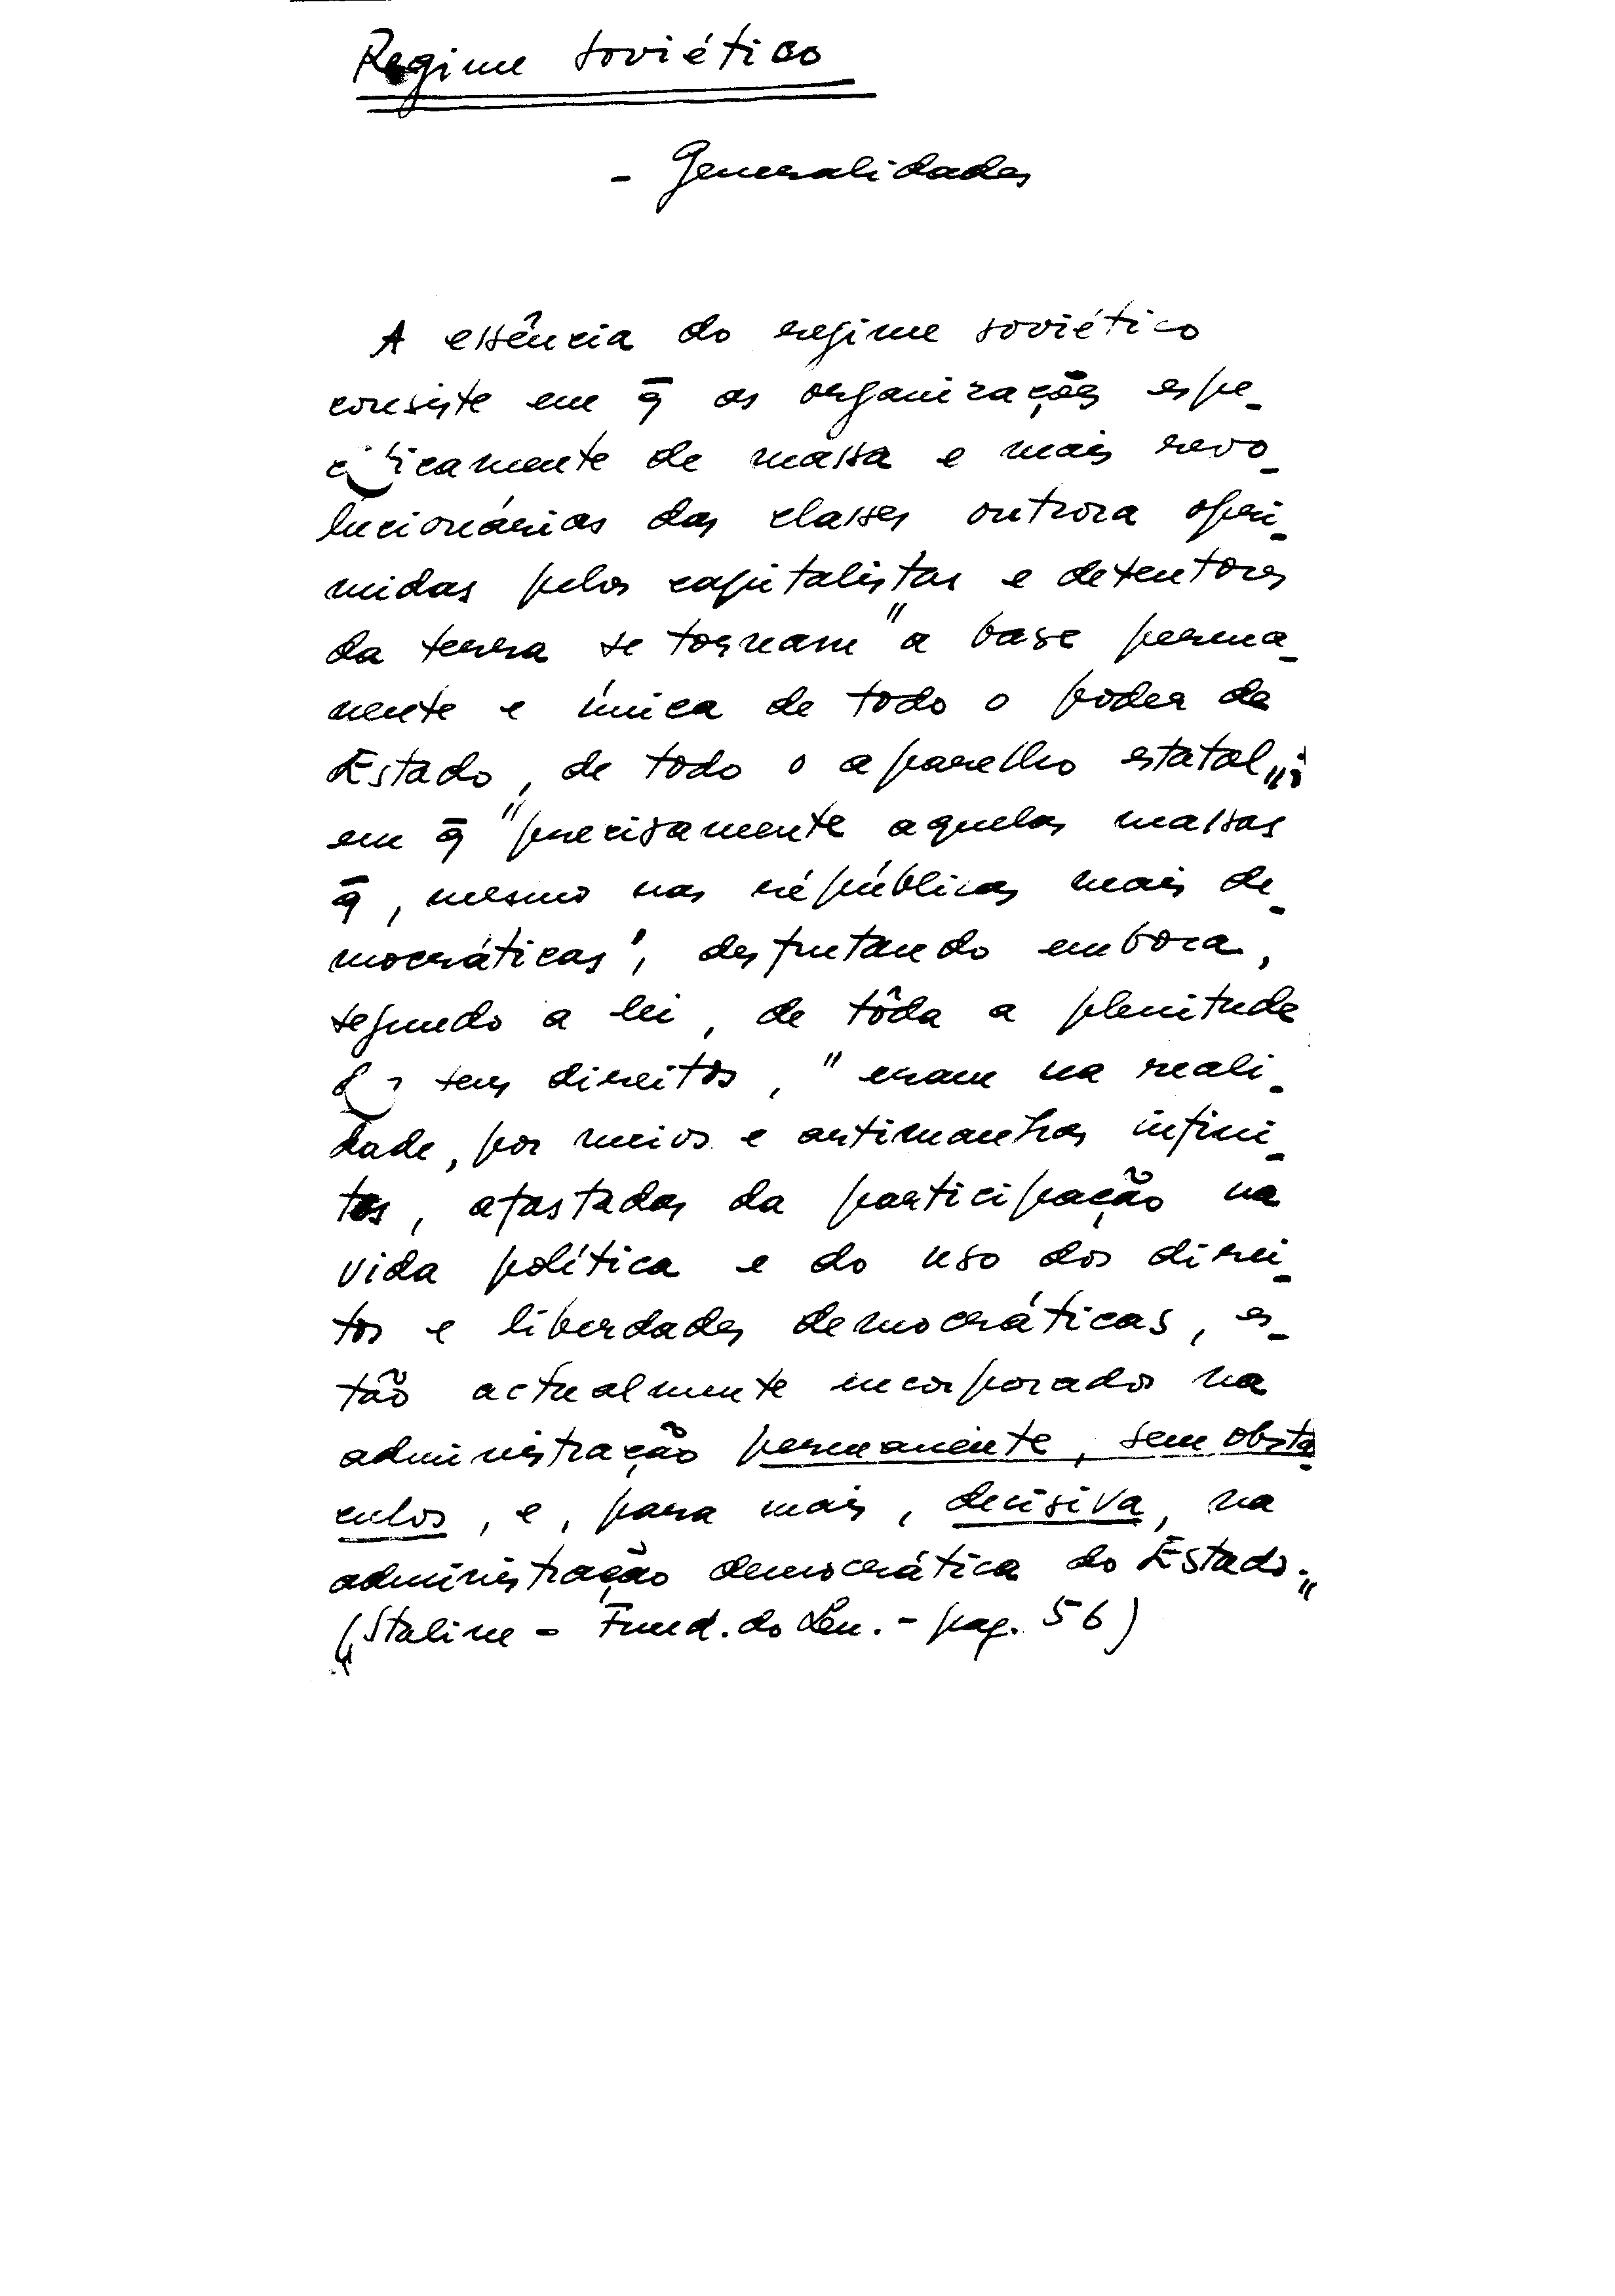 Regime soviético
- Generalidades
A essência do regime soviético
consiste em q̄ as organizações espe-
cìficamente de massa e mais revo-
lucionárias das classes outrora opri-
midas pelos capitalistas e detentores
da terra se tornam "a base perma-
nente e única de todo o poder de
Estado, de todo o aparelho estatal";
em q̄ "precisamente aquelas massas
q̄, mesmo nas repúblicas mais de-
mocráticas", desfrutando embora,
segundo a lei, de tôda a plenitude
seus direitos, "eram na reali-
dade, por meios e artimanhas infini-
tos, afastadas da participação na
vida política e do uso dos direi-
tos e liberdades democráticas, es-
tão actualmente incorporados na
administração permanente, sem obstá-
culos, e, para mais, decisiva, na
administração democrática do Estado."
(Staline - Fund. do Len. - pag. 56)